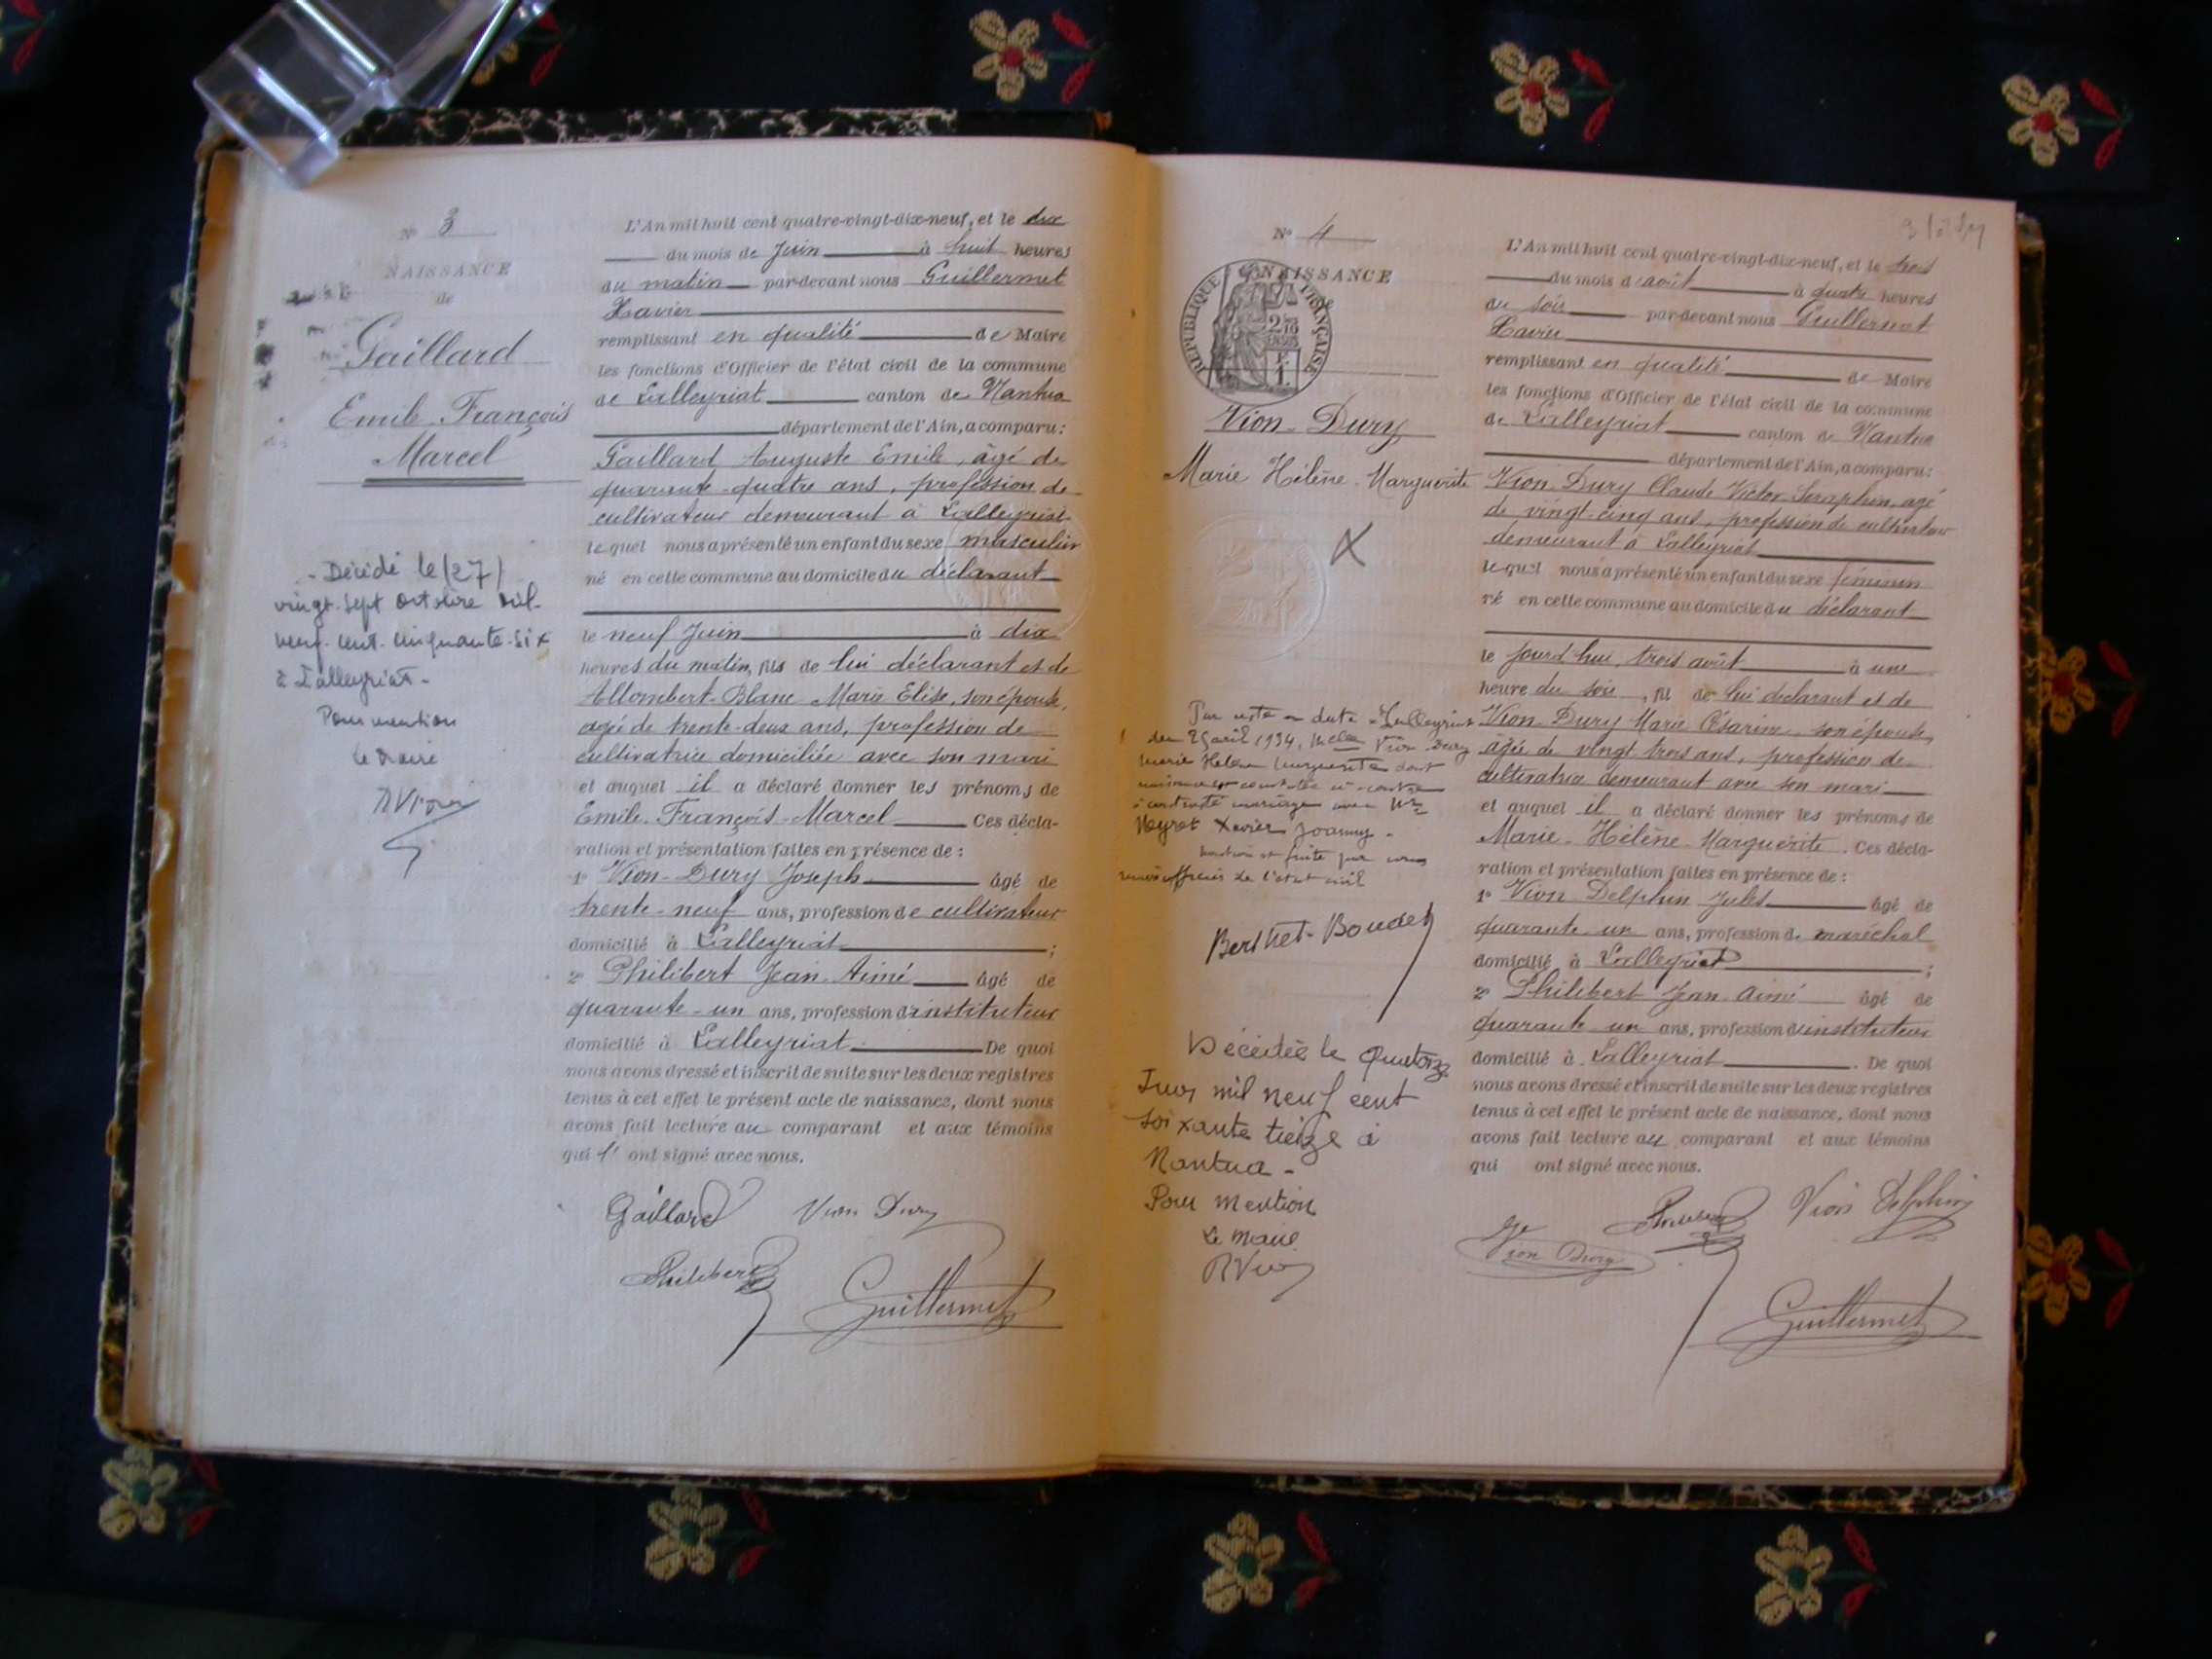 N° 3
NAISSANCE
de
Gaillard
Emile François
Marcel
- Décédé le (27)
vingt-sept octobre mil-
neuf-cent-cinquante-six
à Lalleyriat -
Pour mention
Le Maire
L'An mil huit cent quatre-vingt-dix-neuf, et le dix
du mois de Juin à huit heures
du matin par-devant nous Guillermet
Xavier
remplissant en qualité de Maire
les fonctions d'Officier de l'état civil de la commune
de Lalleyriat canton de Nantua
département de l'Ain, a comparu:
Gaillard Auguste Emile, âgé de
quarante-quatre ans, profession de
cultivateur demeurant à Lalleyriat
lequel nous a présenté un enfant du sexe masculin
né en cette commune au domicile du déclarant
le neuf Juin à dix
heures du matin, fils de lui déclarant et de
Allombert-Blanc Marie Elise, son épouse,
agée de trente-deux ans, profession de
cultivatrice domiciliée avec son mari
et auquel il a déclaré donner les prénoms de
Emile-François-Marcel Ces décla-
ration et présentation faites en présence de:
1° Vion-Dury Joseph âgé de
trente-neuf ans, profession de cultivateur
domicilié à Lalleyriat ;
2° Philibert Jean Aimé âgé de
quarante-un ans, profession d'instituteur
domicilié à Lalleyriat De quoi
nous avons dressé et inscrit de suite sur les deux registres
tenus à cet effet le présent acte de naissance, dont nous
avons fait lecture au comparant et aux témoins
qui l' ont signé avec nous.
Gaillard Vion Dury
Philibert
Guillermet
N° 4
NAISSANCE
RÉPUBLIQUE FRANÇAISE
Vion-Dury
Marie Hélène Marguerite
X
Par acte en date à Lalleyriat
du 2 avril 1934, Melle Vion Dury
Marie Hélène Marguerite dont
naissance constatée ci-contre
a contracté mariage avec Mr
Neyret Xavier Joanny -
Mention faite par nous
officier de l'état civil
Berthet-Boudet
Décédée le Quatorze
mil neuf cent
soixante treize à
Nantua -
Pour mention
Le maire
L'An mil huit cent quatre-vingt-dix-neuf, et le trois
du mois d'août à quatre heures
du soir par-devant nous Guillermet
Xavier
remplissant en qualité de Maire
les fonctions d'Officier de l'état civil de la commune
de Lalleyriat canton de Nantua
département de l'Ain, a comparu:
Vion-Dury Claude Victor Séraphin, agé
de vingt-cinq ans, profession de cultivateur
demeurant à Lalleyriat
lequel nous a présenté un enfant du sexe féminin
né en cette commune au domicile du déclarant
le jourd'hui, trois août à une
heure du soir, fil de lui déclarant et de
Vion-Dury Marie Césarine, son épouse,
âgée de vingt trois ans, profession de
cultivatrice demeurant avec son mari
et auquel il a déclaré donner les prénoms de
Marie-Hélène-Marguérite. Ces décla-
ration et présentation faites en présence de:
1° Vion-Delphin Jules âgé de
quarante-un ans, profession de maréchal
domicilié à Lalleyriat ;
2° Philibert Jean Aimé âgé de
quarante-un ans, profession d'instituteur
domicilié à Lalleyriat. De quoi
nous avons dressé et inscrit de suite sur les deux registres
tenus à cet effet le présent acte de naissance, dont nous
avons fait lecture au comparant et aux témoins
qui ont signé avec nous.
Philibert Vion Delphin
Vion Dury
Guillermet